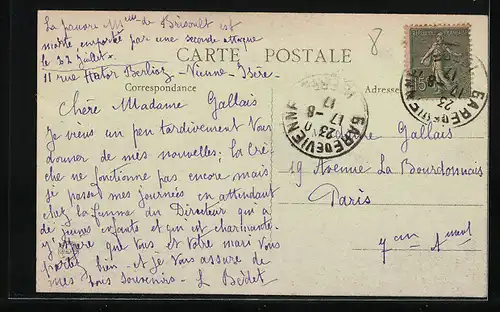 La pauvre Mme de Brisoult est
morte, emportée par une seconde attaque
le 32 juillet.
11 rue Hector Berlioz - Vienne - Isère -
8
CARTE POSTALE
Correspondance
Adresse
Chère Madame Gallais
Je viens un peu tardivement Vous
donner de mes nouvelles. La Crè-
che ne fonctionne pas encore mais
je passe mes journées en attendant
chez la femme du Directeur qui a
de jeunes enfants et qui est charmante.
J'espère que Vous et Votre mari Vous
portez bien - et je Vous assure de
mes bons souvenirs - L Bédet
GARE DE VIENNE
23
17 - 8
17
GARE DE VIENNE
23
17 - 8
17
15
Gallais
19 Avenue La Bourdonnais
Paris
7